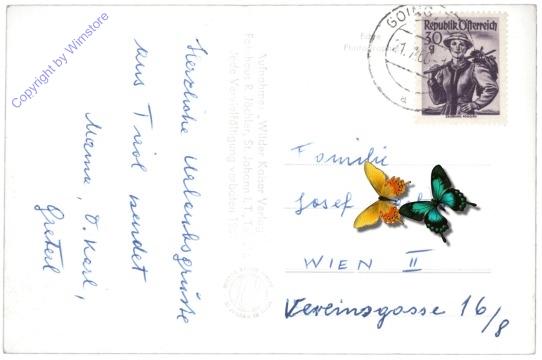 Copyright by Wimstore
Herzliche Urlaubsgrüße
aus Tirol sendet
Mama, O. Karl,
Gretel
Aufnahme: „Wilder Kaiser Verlag
St. Johann i. T.
Jede Vervielfältigung verboten
GOING
21.
a
Republik Österreich
30
g
Familie
Josef
WIEN II
Vereinsgasse 16/8